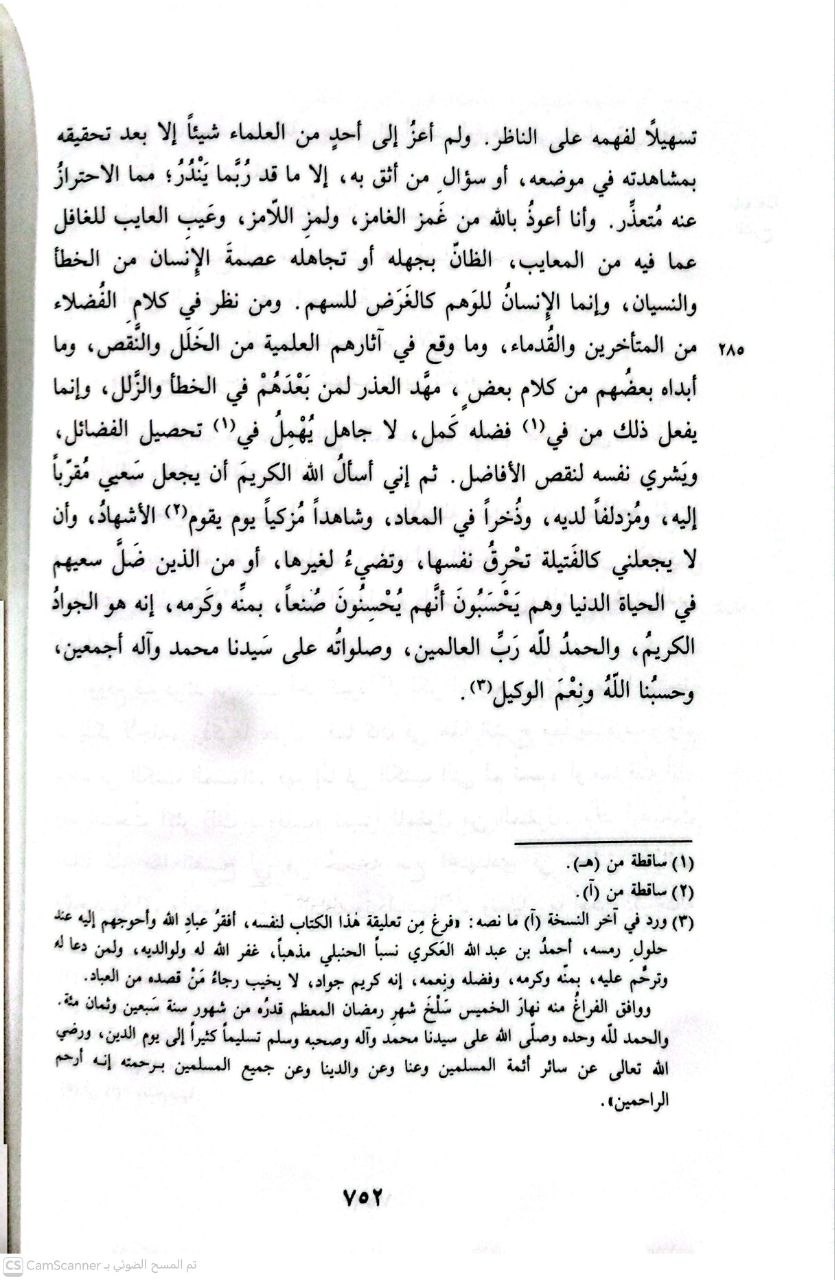 تسهيلًا لفهمه على الناظر. ولم أعزُ إلى أحدٍ من العلماء شيئاً إلا بعد تحقيقه
بمشاهدته في موضعه، أو سؤالِ من أثق به، إلا ما قد رُبَّما يَنْدُرُ؛ مما الاحترازُ
عنه مُتعذِّر. وأنا أعوذُ بالله من غَمز الغامز، ولمزِ اللّامز، وعَيبِ العايب للغافل
عما فيه من المعايب، الظانّ بجهله أو تجاهله عصمةَ الإِنسان من الخطأ
والنسيان، وإنما الإِنسانُ للوَهم كالغَرَض للسهم. ومن نظر في كلامِ الفُضلاء
من المتأخرين والقُدماء، وما وقع في آثارهم العلمية من الخَلَل والنَّقصِ، وما
٢٨٥
أبداه بعضُهم من كلام بعضٍ، مهَّد العذر لمن بَعْدَهُمْ في الخطأ والزَّلل، وإنما
يفعل ذلك من في(١) فضله كَمل، لا جاهل يُهْمِلُ في(١) تحصيل الفضائل،
ويَشري نفسه لنقص الأفاضل. ثم إني أسألُ الله الكريمَ أن يجعل سَعيي مُقرّباً
إليه، ومُزدلفاً لديه، وذُخراً في المعاد، وشاهداً مُزكياً يوم يقوم(٢) الأشهادُ، وأن
لا يجعلني كالفَتيلة تحْرِقُ نفسها، وتضيءُ لغيرها، أو من الذين ضَلَّ سعيهم
في الحياة الدنيا وهم يَحْسَبُونَ أنَّهم يُحْسِنُونَ صُنعاً، بمنِّه وكَرمه، إنه هو الجوادُ
الكريمُ، والحمدُ للّه رَبِّ العالمين، وصلواتُه على سَيدنا محمد وآله أجمعين،
وحسبُنا اللّهُ ونِعْمَ الوكيل(٣).
(١) ساقطة من (هـ).
(٢) ساقطة من (آ).
(٣) ورد في آخر النسخة (آ) ما نصه: «فرغ مِن تعليقة هٰذا الكتاب لنفسه، أفقرُ عبادِ الله وأحوجهم إليه عند
حلولِ رمسه، أحمدُ بن عبد الله العَكري نسباً الحنبلي مذهباً، غفر الله له ولوالديه، ولمن دعا له
وترحَّم عليه، بمنّه وكرمه، وفضله ونِعمه، إنه كريم جواد، لا يخيب رجاءُ مَنْ قصده من العباد.
ووافق الفراغُ منه نهارَ الخميس سَلْخَ شهرِ رمضان المعظم قدرُه من شهور سنة سَبعين وثمان مئة.
والحمد للّه وحده وصلّى الله على سيدنا محمد وآله وصحبه وسلم تسليماً كثيراً إلى يوم الدين، ورضي
الله تعالى عن سائر أئمة المسلمين وعنا وعن والدينا وعن جميع المسلمين بـرحمته إنـه أرحم
الراحمين».
٧٥٢
CS CamScanner تم المسح الضوئي بـ